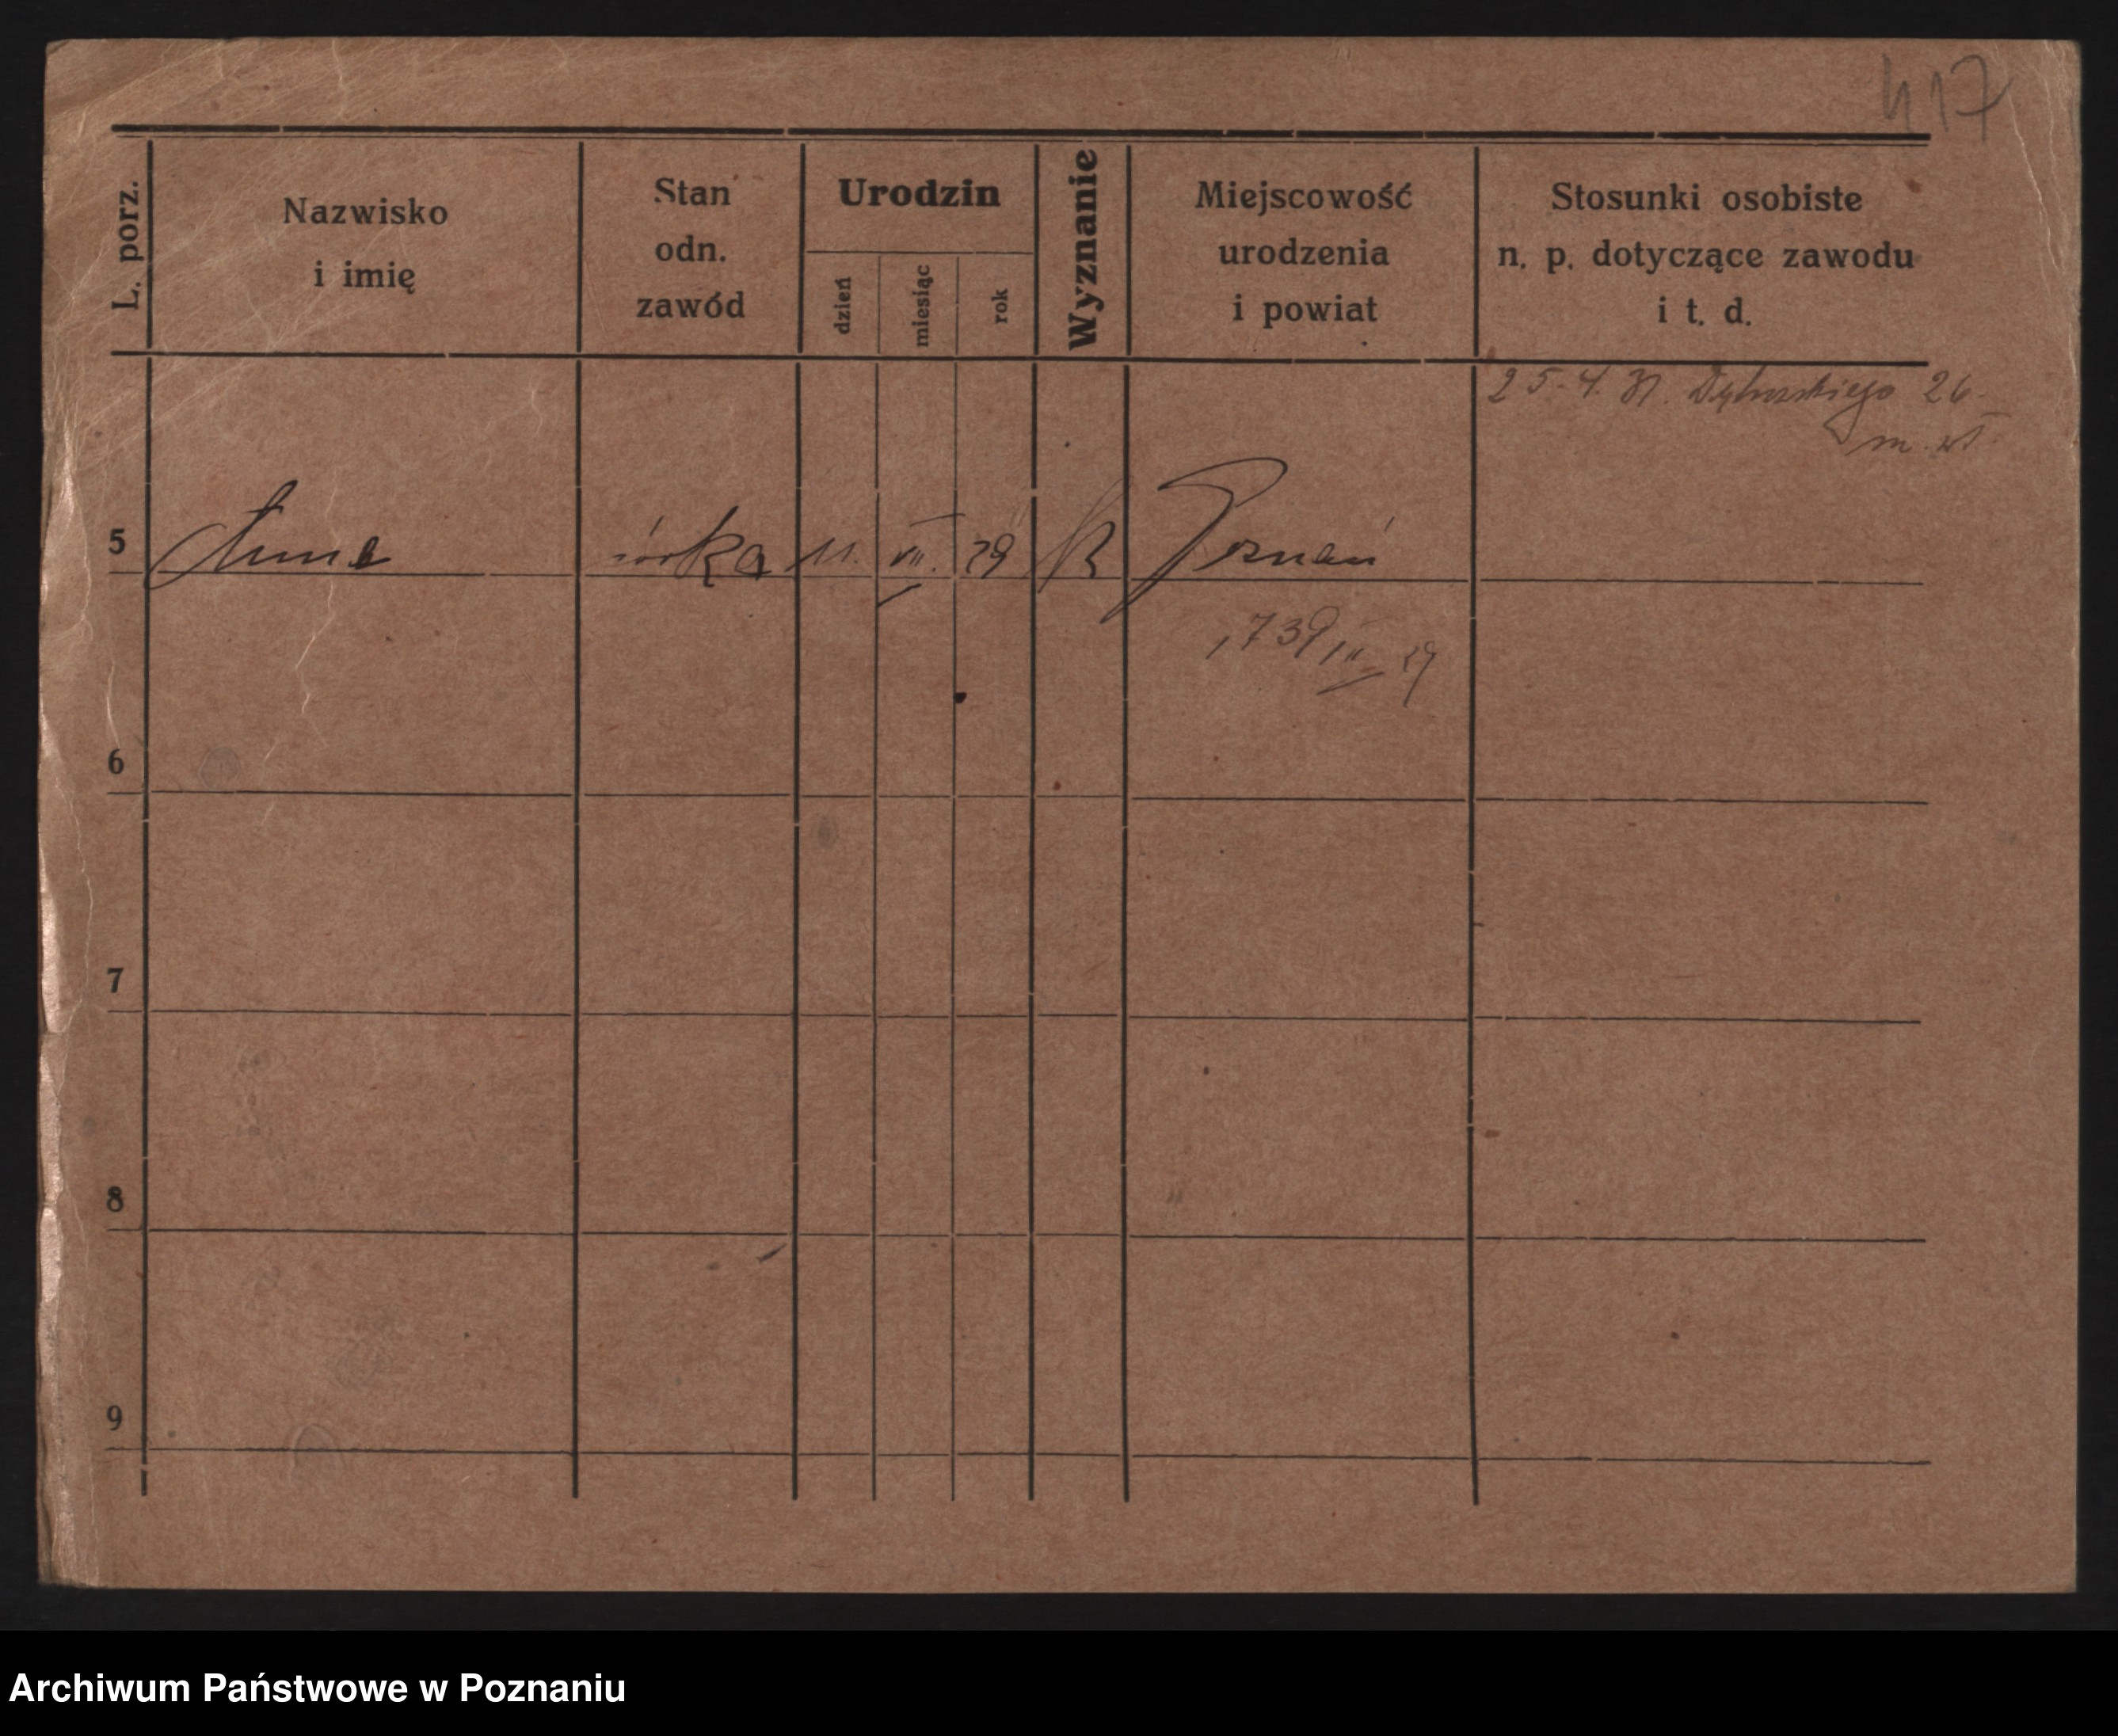 417
L. porz.
Nazwisko
i imię
Stan
odn.
zawód
Urodzin
dzień
miesiąc
rok
Wyznanie
Miejscowość
urodzenia
i powiat
Stosunki osobiste
n. p. dotyczące zawodu
i t. d.
25.4.31. 26
m.
5 Anna córka 11. VII. 29 k Poznań
1739
6
7
8
9
Archiwum Państwowe w Poznaniu